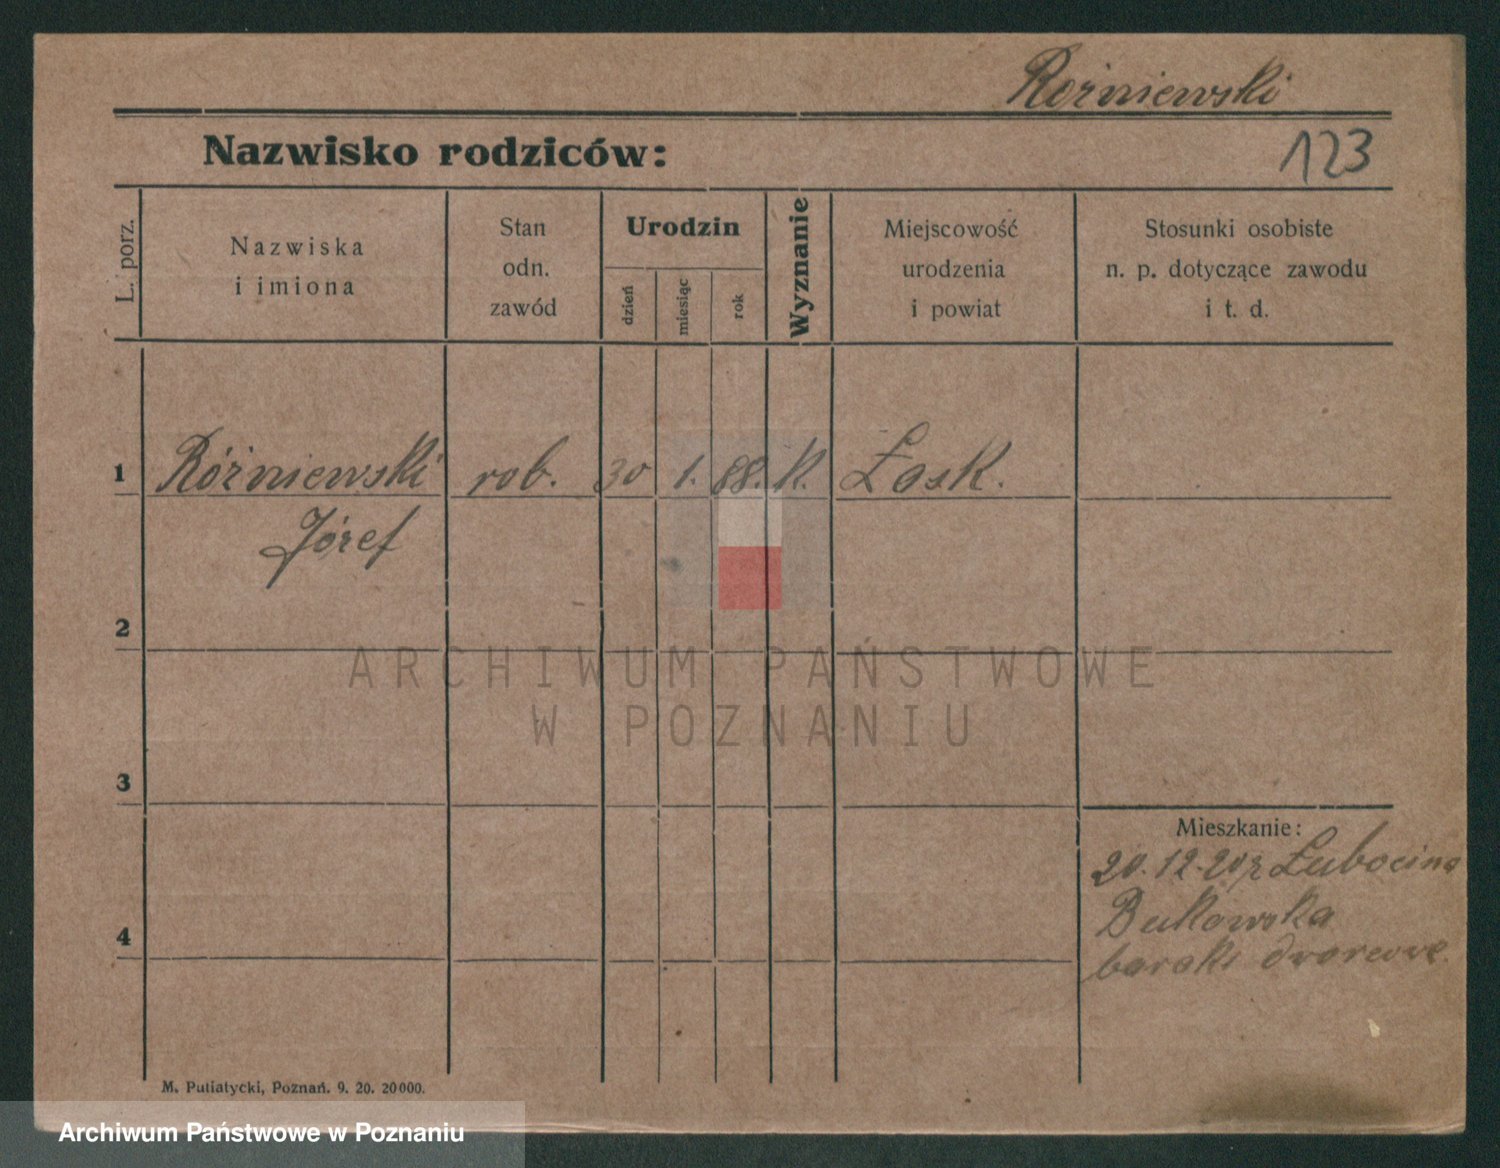 Rożniewski
Nazwisko rodziców:
123
L. porz.
Nazwiska
i imiona
Stan
odn.
zawód
Urodzin
dzień
miesiąc
rok
Wyznanie
Miejscowość
urodzenia
i powiat
Stosunki osobiste
n. p. dotyczące zawodu
i t. d.
1 Różniewski rob. 30 1. 88. K. Łask.
Józef
2
ARCHIWUM PAŃSTWOWE
W POZNANIU
3
Mieszkanie:
20.12.20 z
Bukowska
baraki
4
M. Putiatycki, Poznań. 9. 20. 20000.
Archiwum Państwowe w Poznaniu